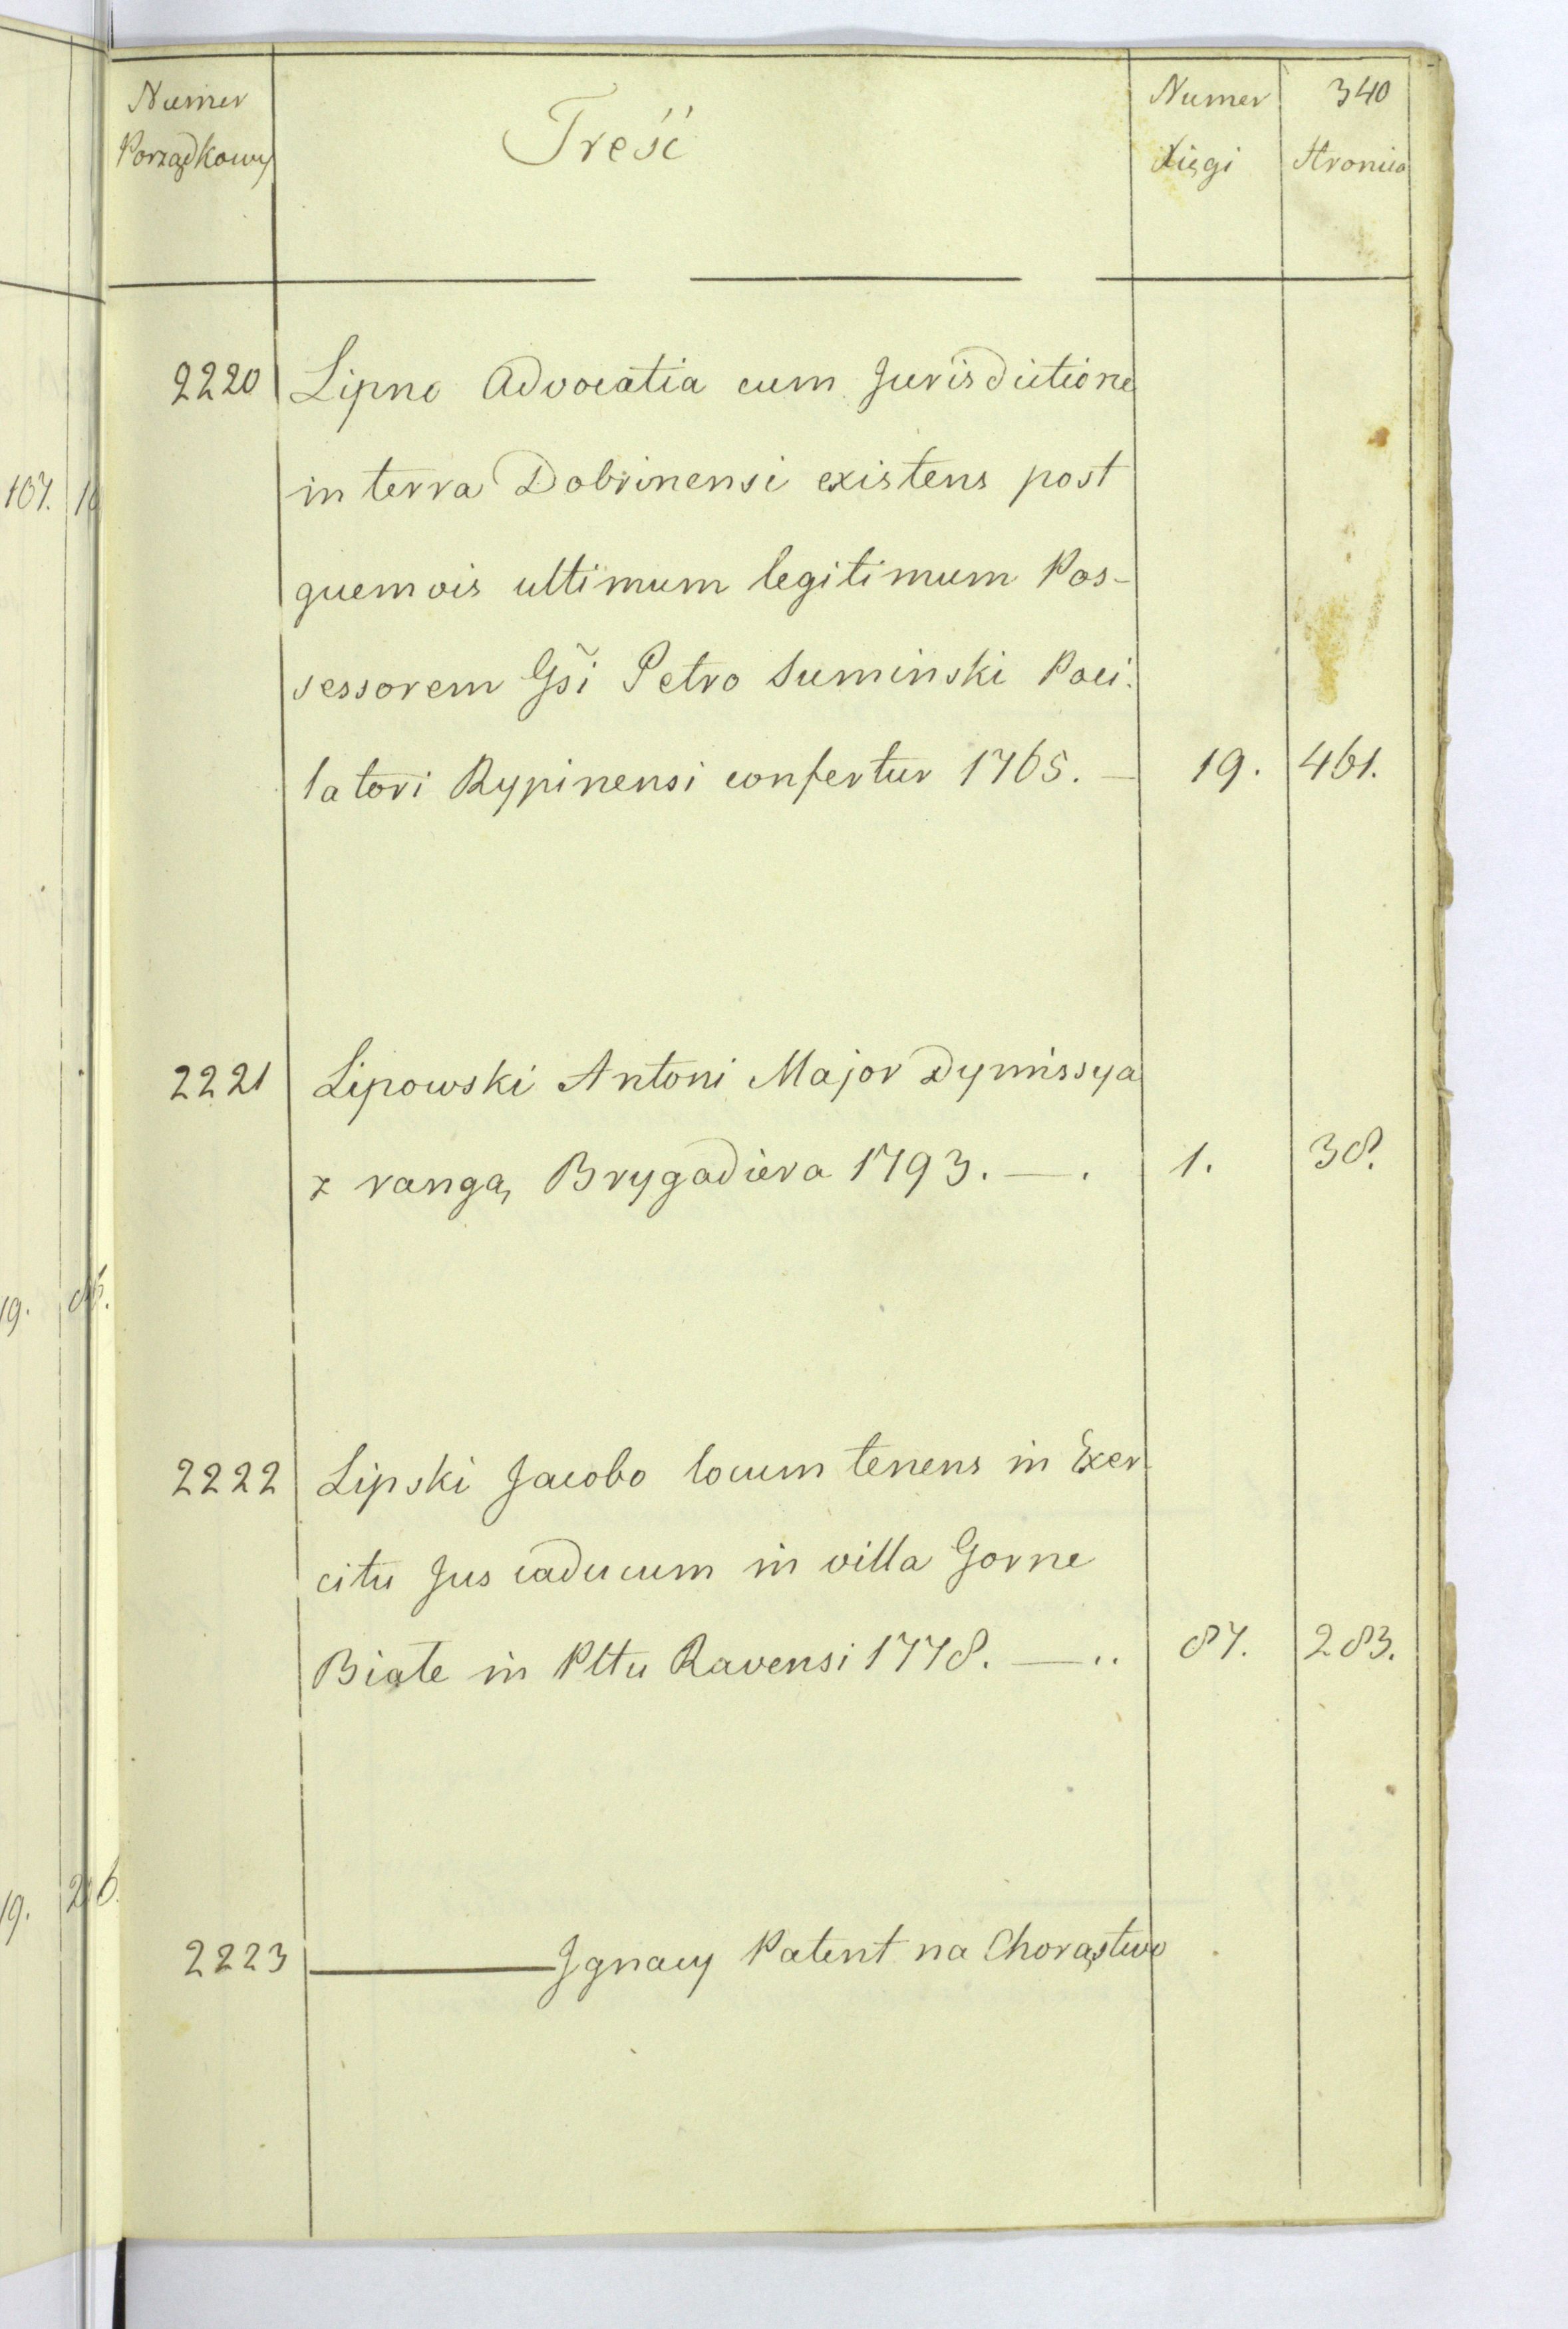 Numer Porządkowy Treść Numer Xięgi 340 Stronica
2220 Lipno Advocatia cum Jurisdictione
in terra Dobrinensi existens post
quemvis ultimum legitimum Pos-
sessorem Gsi Petro Suminski Poci.
latori Rypinensi confertur 1765. — 19. 461.
2221 Lipowski Antoni Major Dymissya
z rangą Brygadiera 1793. — . 1. 38.
2222 Lipski Jacobo locum tenens in Exer
citu Jus caducum in villa Gorne
Białe in Pltu Ravensi 1778. — .. 87. 283.
2223 ——— Ignacy Patent na Chorąstwo
107.
19.
19.